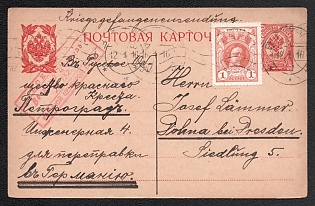 Kriegsgefangenensendung
ПОЧТОВАЯ КАРТОЧКА
Въ Русское Об-
щество краснаго
Креста
Петроградъ
Инженерная 4
для переправки
въ Германію.
Herrn
Josef Lämmer
Dohna bei Dresden.
Siedlung 5.
1 1